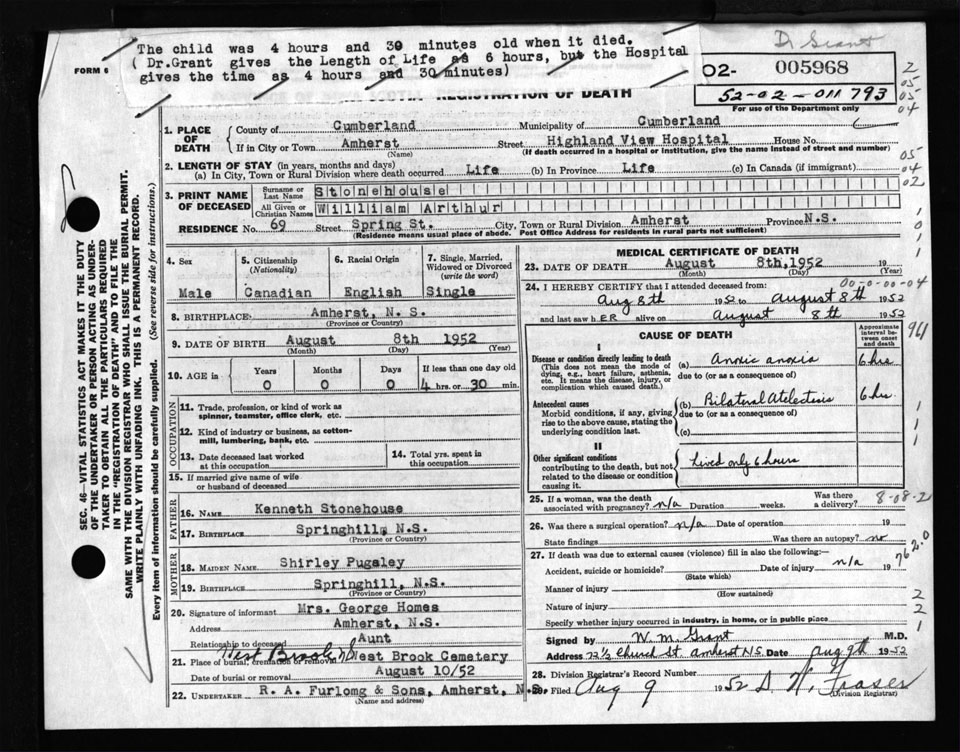 The child was 4 hours and 30 minutes old when it died.
( Dr.Grant gives the Length of Life as 6 hours, but the Hospital
gives the time as 4 hours and 30 minutes)
D. Grant
FORM 6
O2- 005968
52-02-011793
For use of the Department only
REGISTRATION OF DEATH
1. PLACE OF DEATH
County of Cumberland Municipality of Cumberland
If in City or Town Amherst Street Highland View Hospital House No.
(Name) (If death occurred in a hospital or institution, give the name instead of street and number)
2. LENGTH OF STAY (in years, months and days)
(a) In City, Town or Rural Division where death occurred Life (b) In Province Life (c) In Canada (if immigrant)
3. PRINT NAME OF DECEASED
Surname or Last Name Stonehouse
All Given or Christian Names William Arthur
RESIDENCE No. 69 Street Spring St. City, Town or Rural Division Amherst Province N.S.
(Residence means usual place of abode. Post Office Address for residents in rural parts not sufficient)
4. Sex
Male
5. Citizenship
(Nationality)
Canadian
6. Racial Origin
English
7. Single, Married,
Widowed or Divorced
(write the word)
Single
8. BIRTHPLACE: Amherst, N. S.
(Province or Country)
9. DATE OF BIRTH August 8th 1952
(Month) (Day) (Year)
10. AGE in
Years Months Days If less than one day old
0 0 0 4 hrs. or 30 min.
OCCUPATION
11. Trade, profession, or kind of work as
spinner, teamster, office clerk, etc.
12. Kind of industry or business, as cotton-
mill, lumbering, bank, etc.
13. Date deceased last worked
at this occupation
14. Total yrs. spent in
this occupation
15. If married give name of wife
or husband of deceased
FATHER
16. NAME Kenneth Stonehouse
17. BIRTHPLACE Springhill, N.S.
(Province or Country)
MOTHER
18. MAIDEN NAME Shirley Pugsley
19. BIRTHPLACE Springhill, N.S.
(Province or Country)
20. Signature of informant Mrs. George Homes
Address Amherst, N.S.
Relationship to deceased Aunt
21. Place of burial, cremation or removal West Brook NS West Brook Cemetery
Date of burial or removal August 10/52
22. UNDERTAKER R. A. Furlomg & Sons, Amherst, N.S.
(Name and address)
MEDICAL CERTIFICATE OF DEATH
23. DATE OF DEATH August 8th,1952 19
(Month) (Day) (Year)
00-0-00-04
24. I HEREBY CERTIFY that I attended deceased from:
Aug 8th 1952 to August 8th 1952
and last saw hER alive on August 8th 1952
CAUSE OF DEATH
Approximate
interval between
onset
and death
I
Disease or condition directly leading to death
(This does not mean the mode of
dying, e.g., heart failure, asthenia,
etc. It means the disease, injury, or
complication which caused death.)
(a) Anoxic anoxia 6 hrs
due to (or as a consequence of)
Antecedent causes
Morbid conditions, if any, giving
rise to the above cause, stating the
underlying condition last.
(b) Bilateral Atelectisis 6 hrs.
due to (or as a consequence of)
(c)
II
Other significant conditions
contributing to the death, but not
related to the disease or condition
causing it.
Lived only 6 hours
25. If a woman, was the death
associated with pregnancy? n/a Duration weeks. Was there
a delivery?
8-08-2
26. Was there a surgical operation? n/a Date of operation 19
State findings Was there an autopsy? no
27. If death was due to external causes (violence) fill in also the following:
Accident, suicide or homicide? Date of injury n/a 19
(State which)
762.0
Manner of injury
(How sustained)
Nature of injury
Specify whether injury occurred in industry, in home, or in public place
Signed by W. M. Grant M.D.
Address 72½ Church St. Amherst N.S. Date Aug 9th 1952
28. Division Registrar's Record Number
29. Filed Aug 9 1952 D. W. Fraser
(Division Registrar)
SEC. 46—VITAL STATISTICS ACT MAKES IT THE DUTY
OF THE UNDERTAKER OR PERSON ACTING AS UNDER-
TAKER TO OBTAIN ALL THE PARTICULARS REQUIRED
IN THE "REGISTRATION OF DEATH" AND TO FILE THE
SAME WITH THE DIVISION REGISTRAR WHO SHALL ISSUE THE BURIAL PERMIT.
WRITE PLAINLY WITH UNFADING INK. THIS IS A PERMANENT RECORD.
Every item of information should be carefully supplied. (See reverse side for instructions.)
2
05
05
04
05
04
02
1
0
1
1
94
1
1
1
2
2
1